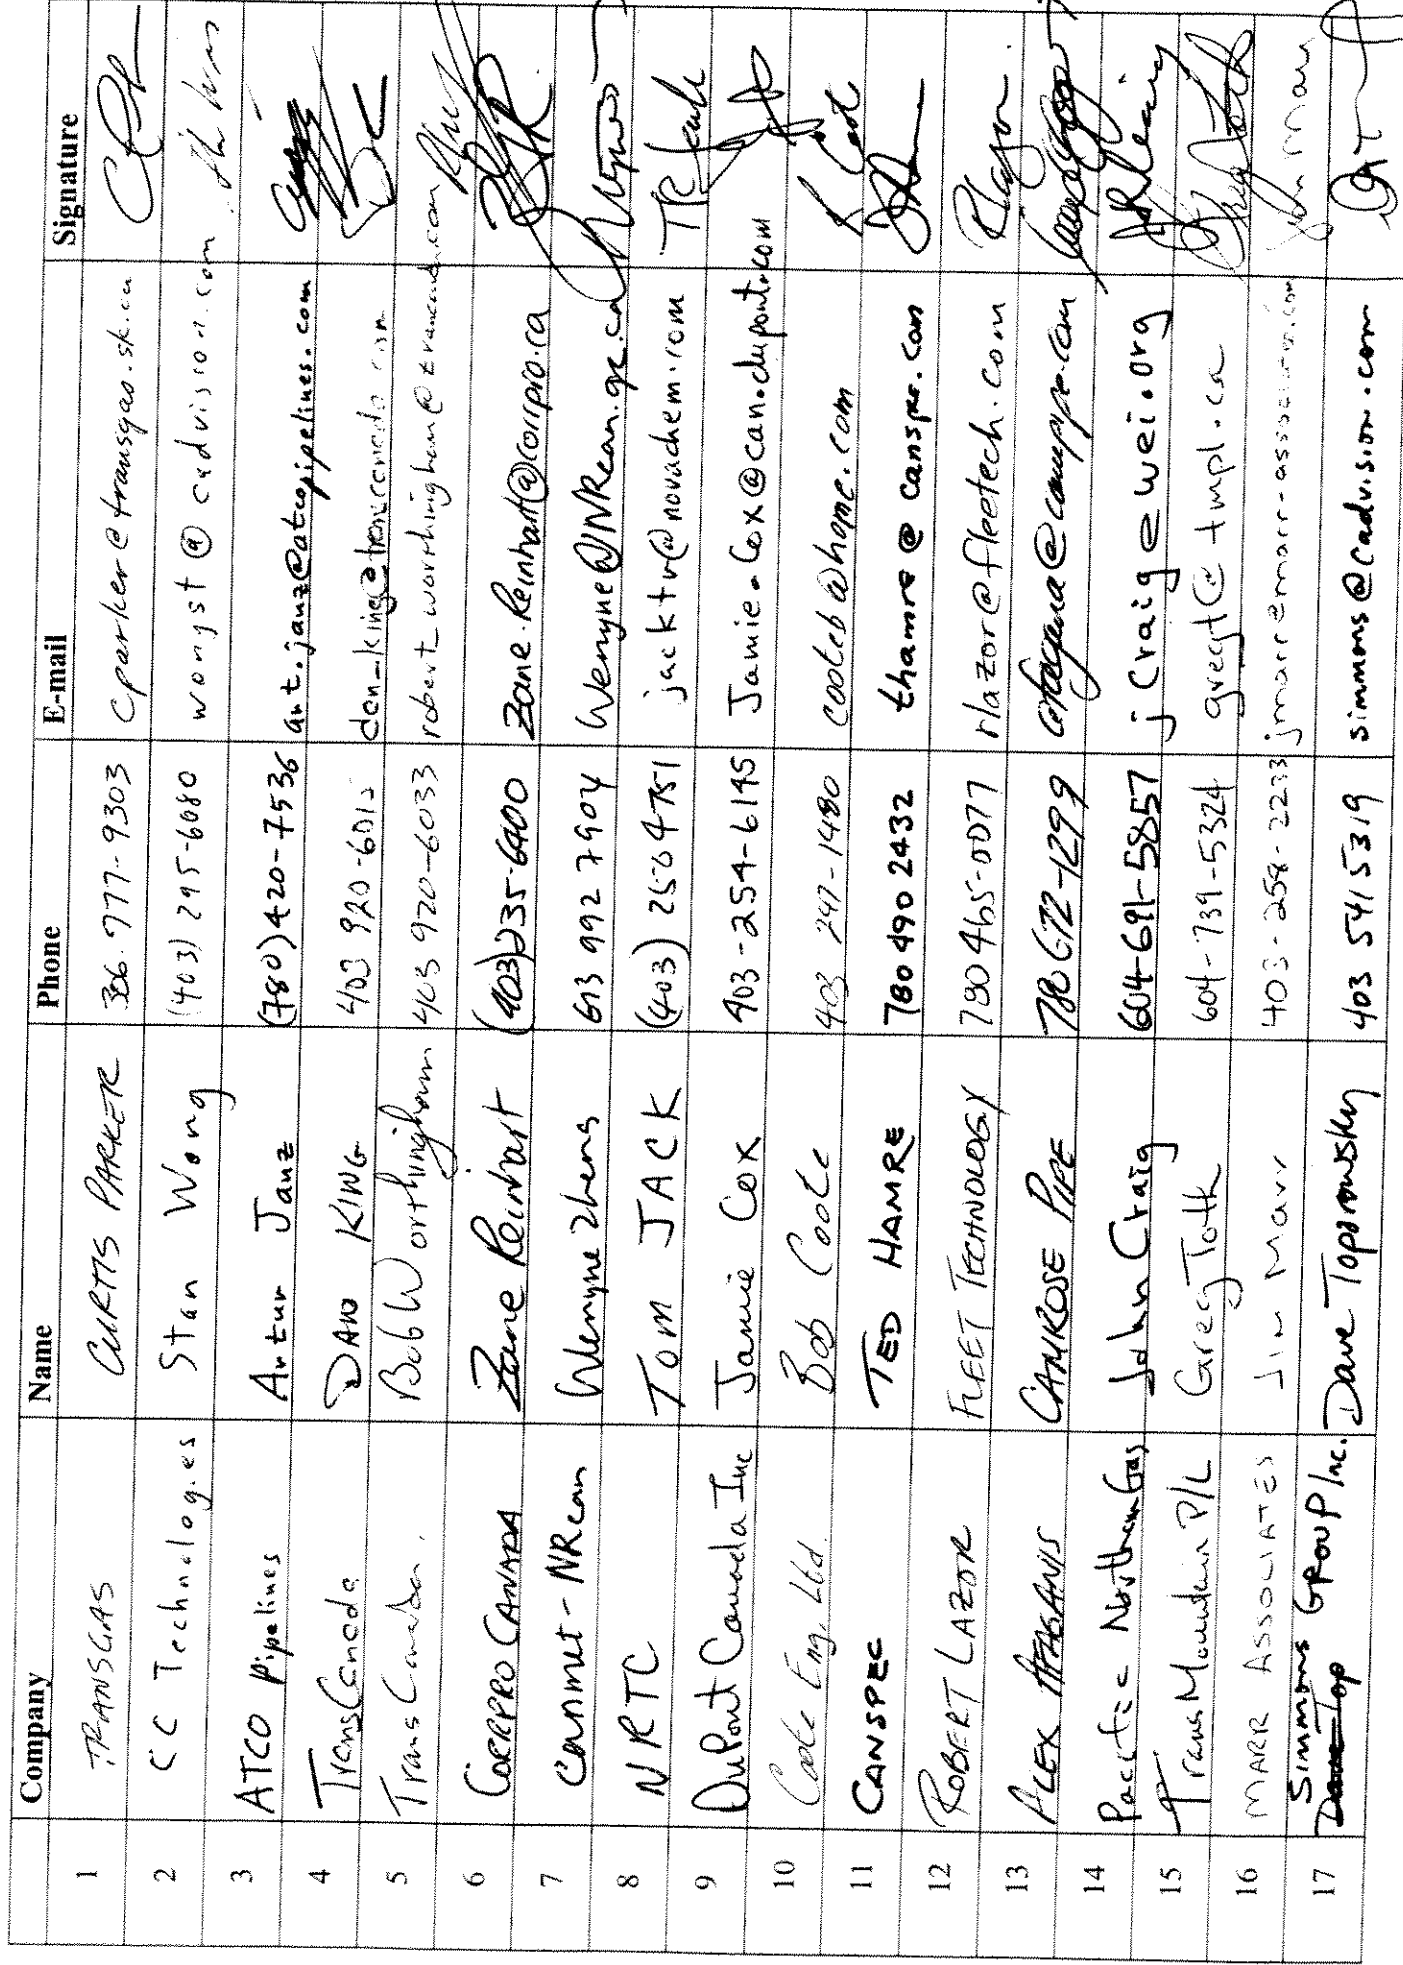 Company Name Phone E-mail Signature
1 TRANSGAS CURTIS PARKER 306.777-9303 cparker@transgas.sk.ca
2 CC Technologies Stan Wong (403) 295-6080 wongst@cadvision.com
3 ATCO Pipelines Artur Janz (780)420-7536 art.janz@atcopipelines.com
4 TransCanada DAVE KING 403 920-601
5 TransCanada Bob Worthingham 403 920-6033
6 CORRPRO CANADA Zane Reinhart (403)235-6400 zane.Reinhart@corrpro.ca
7 Canmet-NRcan Wenyue Zheng 613 992 2904 Wenyue@NRcan.gc.ca
8 NRTC TOM JACK (403) 250 4751 jacktr@novachem.com TR Jack
9 DuPont Canada Inc Jamie Cox 403-254-6145 Jamie.Cox@can.dupont.com
10 Coote Eng. Ltd. Bob Coote 403 247-1480 cooteb@home.com
11 CANSPEC TED HAMRE 780 490 2432 thamre@canspec.com
12 ROBERT LAZOR FLEET TECHNOLOGY 780 465-0077 rlazor@fleetech.com
13 ALEX AFAGANIS CAMROSE PIPE 780 672-1299
14 Pacific Northern Gas John Craig 604-691-5857 jcraig@wei.org
15 TransMountain P/L Greg Toth 604-739-5324 gregt@tmpl.ca
16 MARR ASSOCIATES Jim Marr 403-258-2233 jmarr@marr-associates.com
17 Simmons Group Inc. Dave Topornowsky 403 541 5319 simmons@cadvision.com